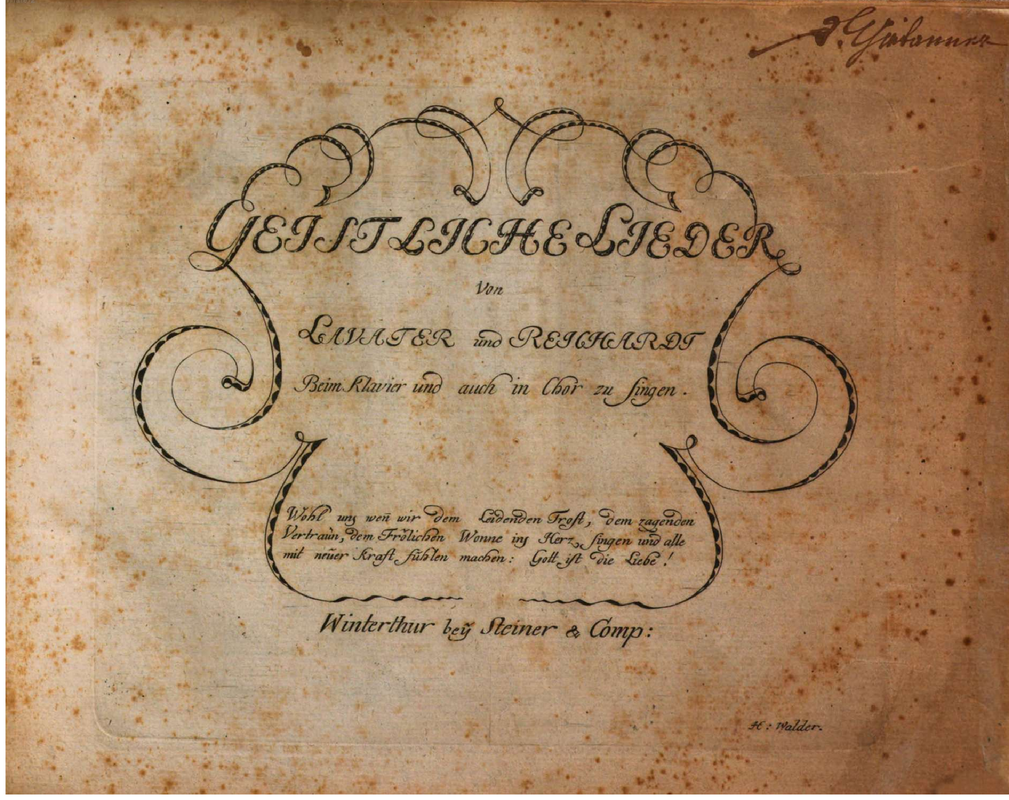 GEISTLICHE LIEDER
Von
LAVATER und REICHARDT
Beim Klavier und auch in Chor zu singen.
Wohl uns weñ wir dem Leidenden Trost, dem zagenden
Vertraun, dem Frölichen Wonne ins Herz singen und alle
mit neuer Kraft fühlen machen: Gott ist die Liebe!
Winterthur beÿ Steiner & Comp:
H: Walder.